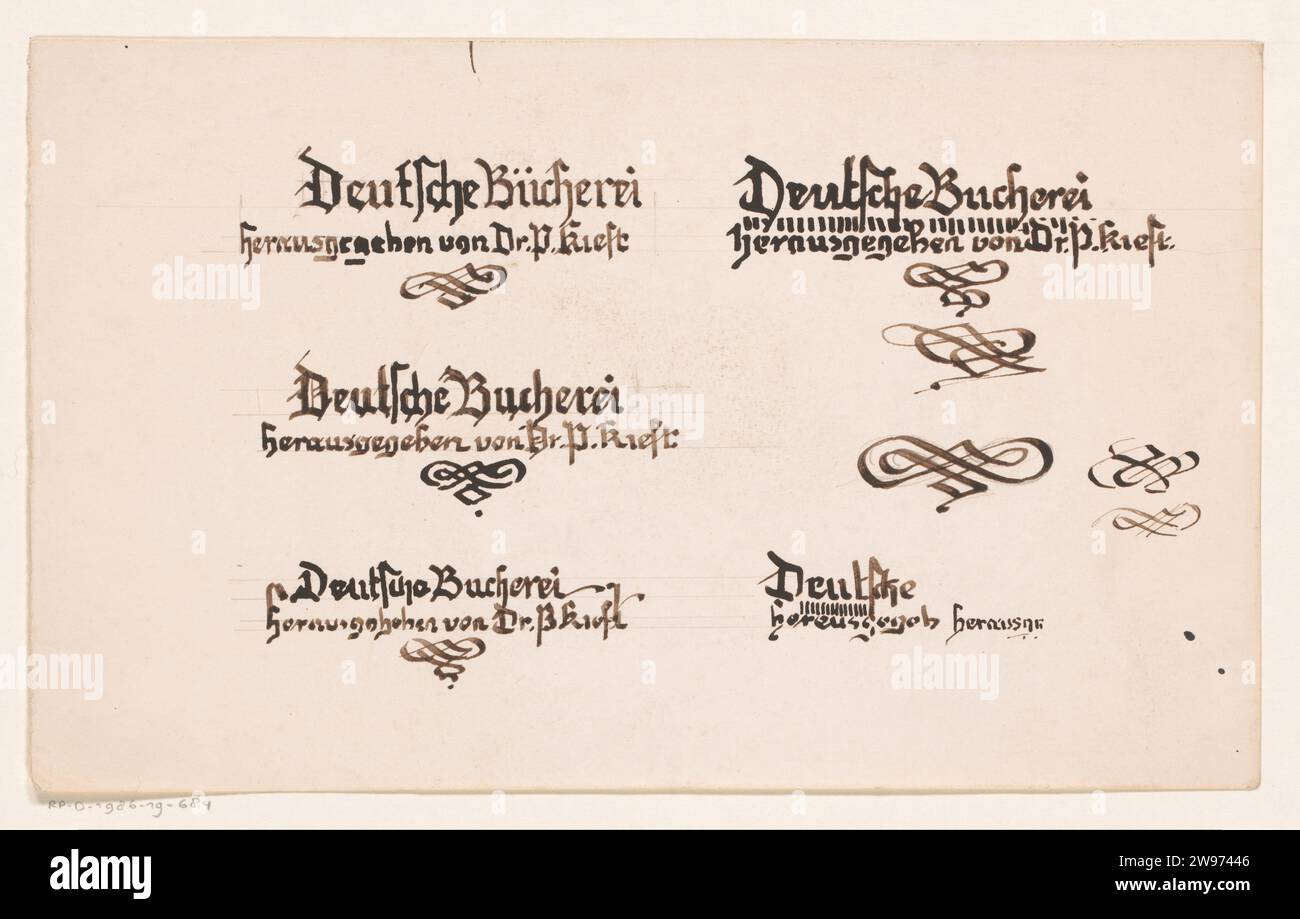 Deutsche Bücherei
herausgegeben von Dr. P. Kieft
Deutsche Bucherei
herausgegeben von Dr. P. Kieft.
Deutsche Bucherei
herausgegeben von Dr. P. Kieft
Deutsche Bucherei
herausgegeben von Dr. P. Kieft
Deutsche
herausgegeb herausge
RP-D-1986-19-684
alamy
alamy
Image ID: 2W97446
www.alamy.com